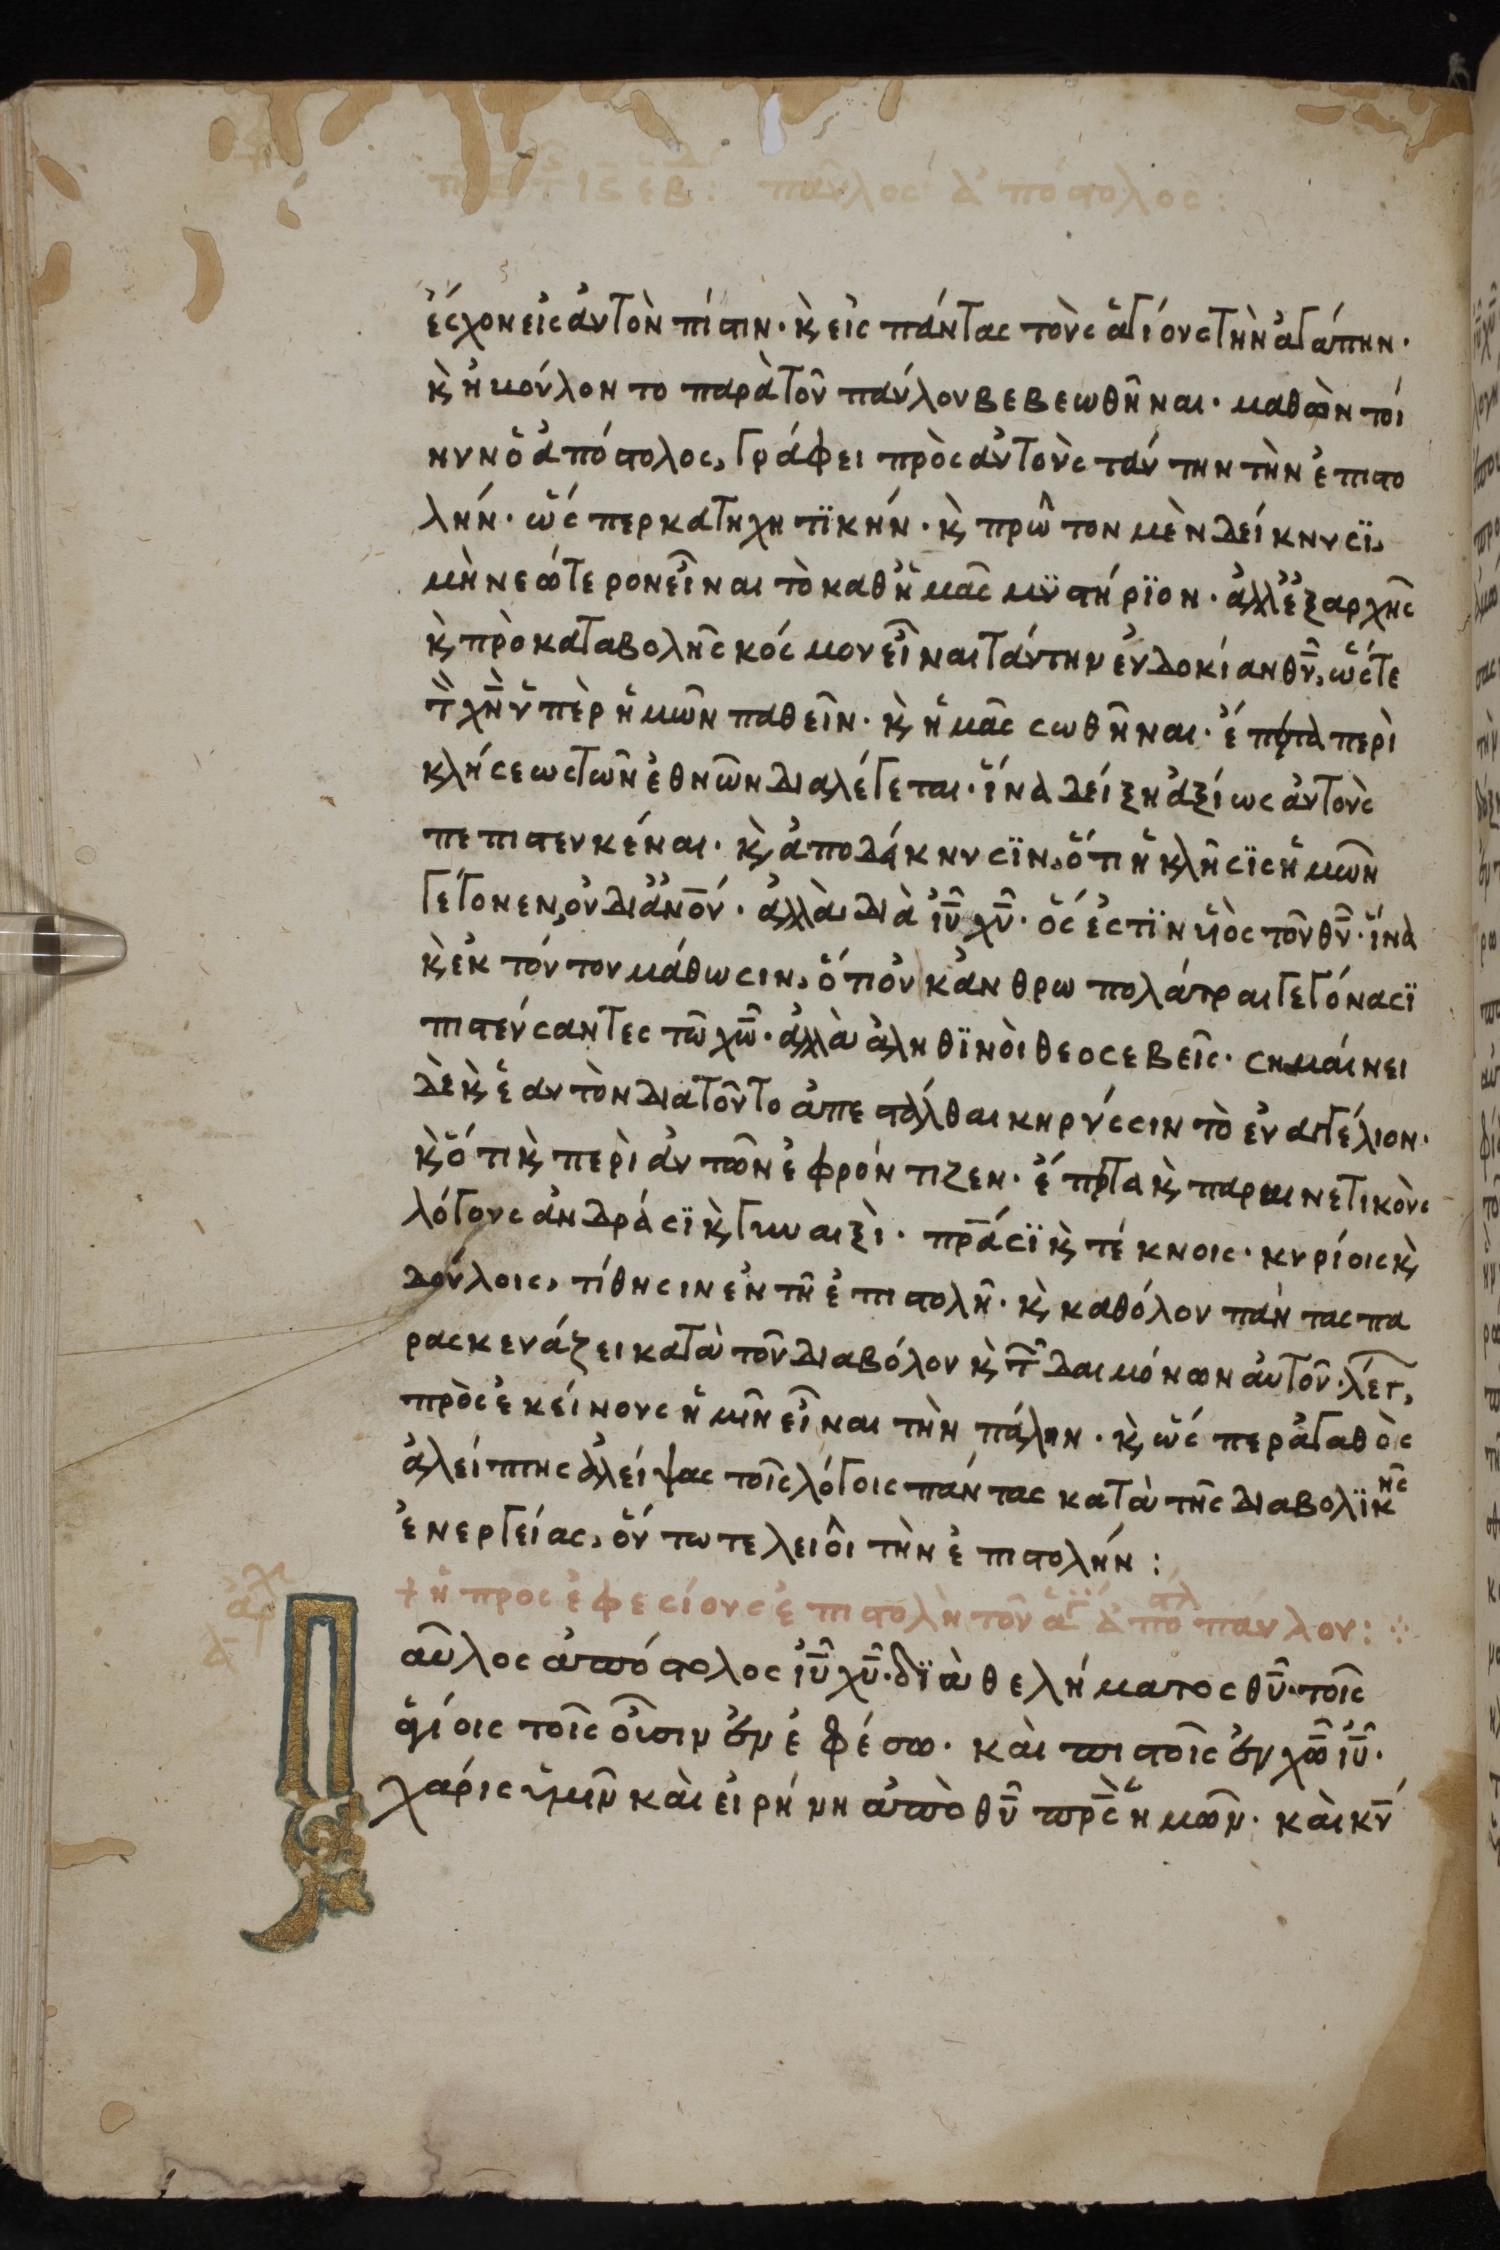 παῦλος ἀπόστολος:
ἔσχον εἰς ἀυτὸν πίστιν· κ̀ εἰς πάντας τοὺς ἁγίους τὴν ἀγάπην·
κ̀ ἠκούλον το παρὰ τοῦ παύλου βεβεωθῆναι· μαθὼν τοί
νυν ὁ ἀπόστολος, γράφει πρὸς ἀυτοὺς ταύτην τὴν ἐπιστο
λήν· ὥσπερ κατηχητϊκήν· κ̀ πρῶτον μὲν δείκνυσϊ,
μὴ νεώτερον εἶναι τὸ καθ ἡμᾶς μϋστήρϊον· ἀλλ ἐξαρχῆς
κ̀ προ καταβολῆς κόσμου εἶναι ταύτην ἐυδοκίαν θῦ, ὥστε
τὸ χν̄ ὑπὲρ ἡμῶν παθεῖν· κ̀ ἡμᾶς σωθῆναι· ἔπιτα περὶ
κλήσεως τῶν ἐθνῶν διαλέγεται· ἵνα δείξη ἀξίως ἀυτοὺς
πεπιστευκέναι· κ̀ ἀποδείκνυσϊν, ὅτι ἡ κλῆσϊς ἡμῶν
γέγονεν, οὐ δι ἀνοῦ· ἀλλὰ διὰ ἰῦ χῦ· ὅς ἐστϊν ὑιὸς τοῦ θῦ· ἵνα
κ̀ ἐκ τούτου μάθωσιν, ὅτι οὐκ ἀνθρωπολάτραι γεγόνασϊ
πιστεύσαντες τῶ χῶ· ἀλλὰ ἀληθϊνὸι θεοσεβεῖς· σημαίνει
δὲ κ̀ ἑαυτὸν δια τοῦτο ἀπεστάλθαι κηρύσσιν τὸ ἐυαγγέλιον·
κ̀ ὅτι κ̀ περὶ ἀυτῶν ἐφρόντιζεν· ἔπιτα κ̀ παραινετικοὺς
λόγους ἀνδράσϊ κ̀ γυναιξὶ· πρ̄άσϊ κ̀ τέκνοις· κυρίοις κ̀
δούλοις, τίθησιν ἐν τῆ ἐπιστολῆ· κ̀ καθόλου πάντας πα
ρασκευάζει κατὰ τοῦ διαβόλου κ̀ τ̄ δαιμόνων ἀυτοῦ· λέγ,
πρὸς ἐκείνους ἡμῖν εἶναι τὴν πάλην· κ̀ ὥσπερ ἀγαθὸς
ἀλείπτης ἀλείψας τοῖς λόγοις πάντας κατὰ τῆς διαβολϊκῆς
ἐνεργείας, οὕτω τελειοῖ τὴν ἐπιστολήν:
+ ἡ προς ἐφεσίους ἐπιστολὴ τοῦ ἁγΐ ἀποστλ παύλου: ⁘
ἀρχ
Παῦλος ἀπόστολος ἰῦ χῦ· δϊὰ θελήματος θῦ· τοῖς
ἁγίοις τοῖς οὖσιν ἐν ἐφέσω· κὰι πιστοῖς ἐν χῶ ἰῦ·
χάρις ὑμῖν κὰι εἰρήνη ἀπὸ θῦ πρ̄ς ἡμῶν· κὰι κύ